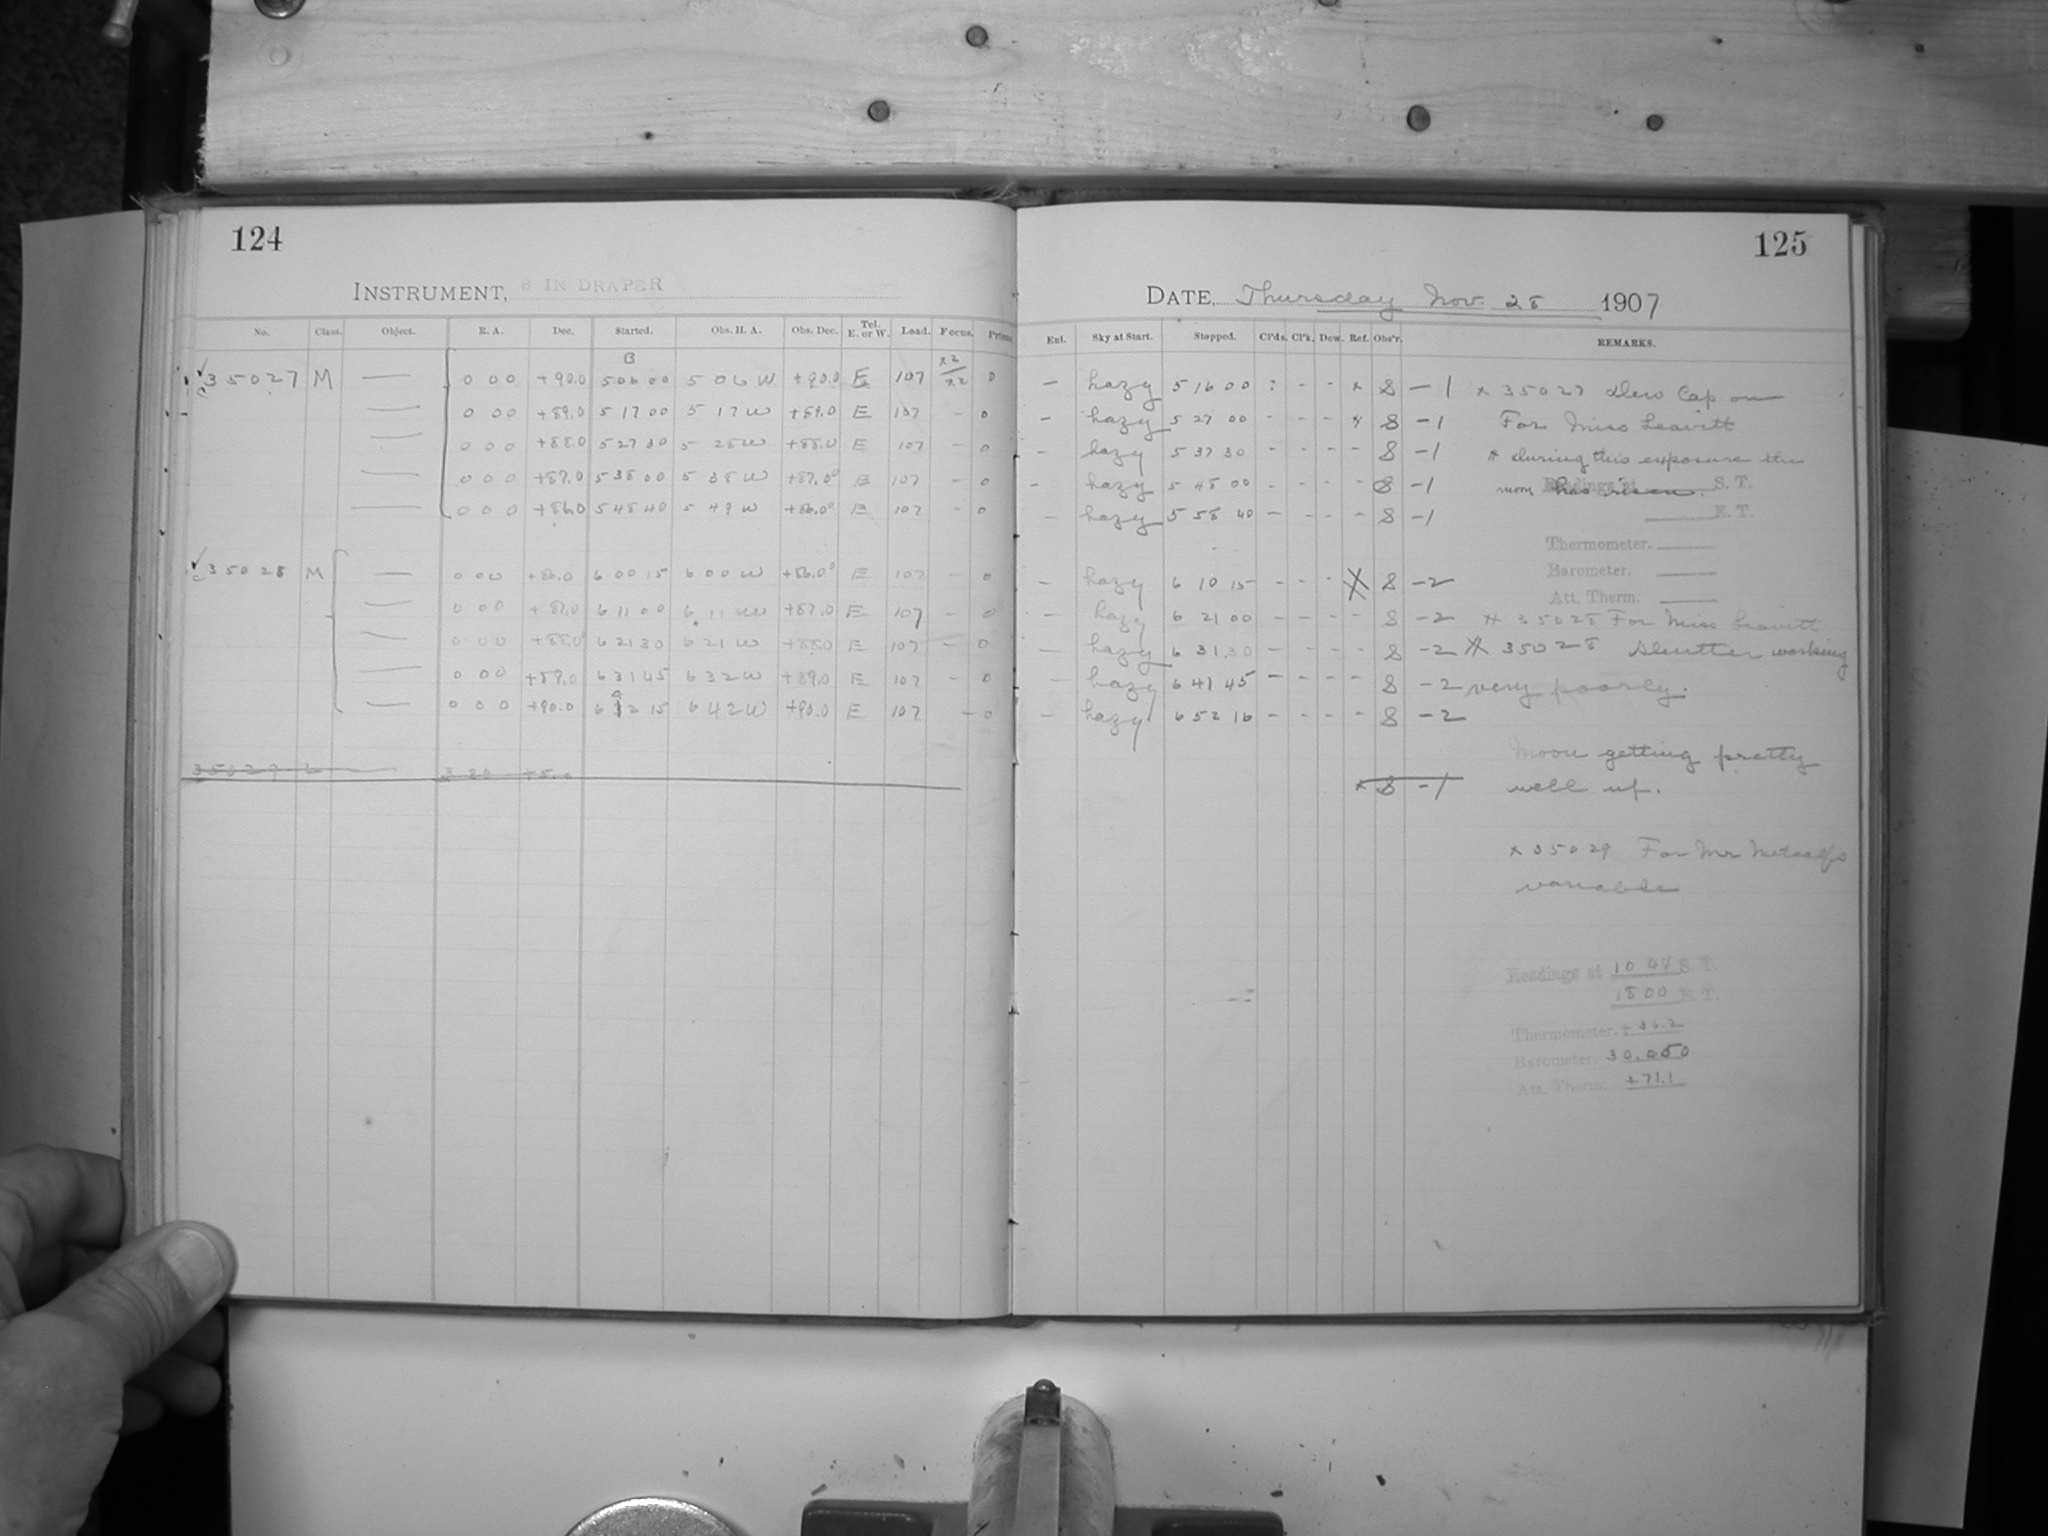 124
INSTRUMENT, 8 IN DRAPER
No. Class. Object. R. A. Dec. Started. Obs. H. A. Obs. Dec. Tel. E. or W. Load. Focus. Prism.
B
35027 M — 0 00 +90.0 5 06 00 5 06 W +90.0 E 107 0
— 0 00 +89.0 5 17 00 5 17 W +89.0 E 107 – 0
— 0 0 0 +88.0 5 27 30 5 28 W +88.0 E 107 – 0
— 0 0 0 +87.0 5 38 00 5 38 W +87.0° E 107 – 0
— 0 0 0 +86.0 5 48 40 5 49 W +86.0° E 107 – 0
35028 M — 0 00 +86.0 6 00 15 6 00 W +86.0° E 107 – 0
— 0 00 +87.0 6 11 00 6 11 W +87.0 E 107 – 0
— 0 00 +88.0 6 21 30 6 21 W +88.0 E 107 – 0
— 0 00 +89.0 6 31 45 6 32 W +89.0 E 107 – 0
— 0 0 0 +90.0 6 42 15 6 42 W +90.0 E 107 – 0
35029 L — 3 20 +5.0
125
DATE, Thursday Nov. 28 1907
Ent. Sky at Start. Stopped. Cl'ds. Cl'k. Dew. Ref. Obs'r. REMARKS.
– hazy 5 16 00 : - - x S –1 x 35027 Dew Cap on
– hazy 5 27 00 - - - x S –1 For Miss Leavitt
– hazy 5 37 30 - - - - S –1 * during this exposure the
– hazy 5 48 00 - - - - S –1 moon has risen.
Readings at S. T.
– hazy 5 58 40 - - - - S –1
E. T.
Thermometer.
Barometer.
Att. Therm.
– hazy 6 10 15 - - - X S –2
– hazy 6 21 00 - - - - S –2 * 35028 For Miss Leavitt
– hazy 6 31 30 - - - - S –2 * 35028 Shutter working
– hazy 6 41 45 - - - - S –2 very poorly.
– hazy 6 52 16 - - - - S –2
Moon getting pretty
x S –1 well up.
x 35029 For Mr Metcalfs
variable
Readings at 10 44 S. T.
18 00 E. T.
Thermometer. +36.2
Barometer. 30.050
Att. Therm. +71.1